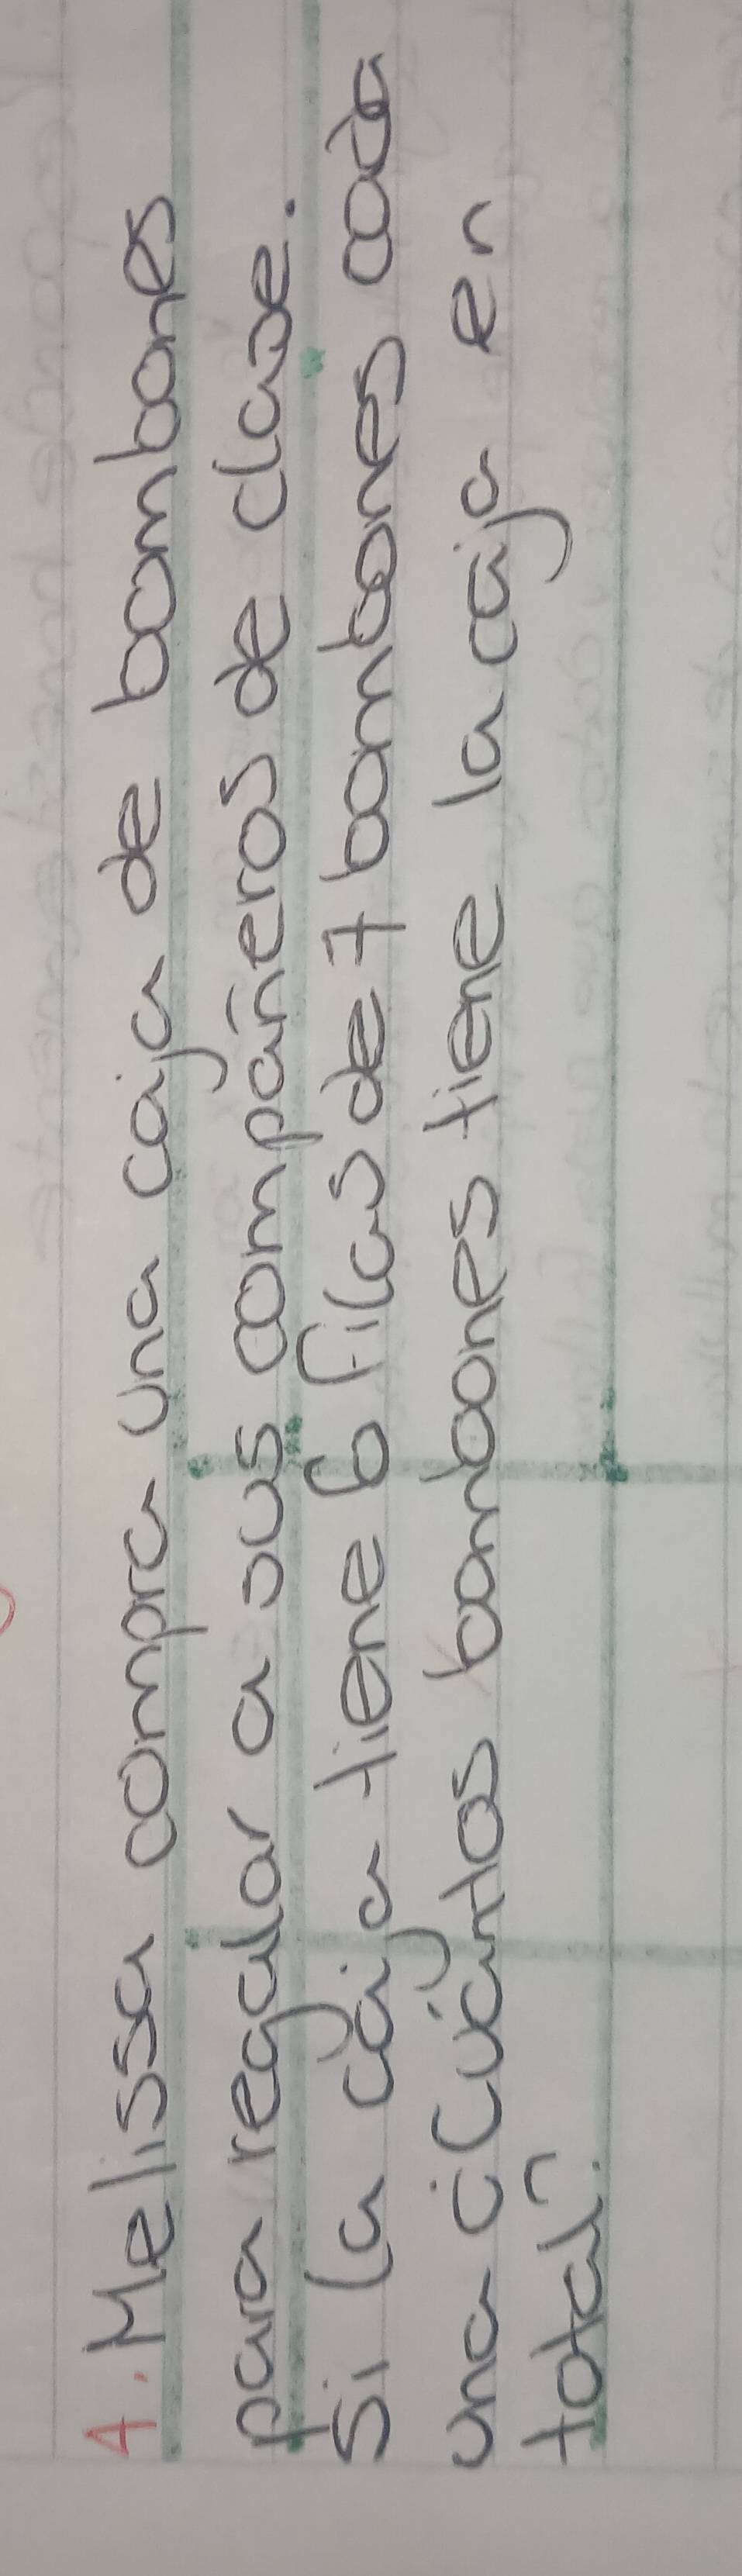 1. Melissa compra una caja de bombones
para regalar a sus compañeros de clase.
Si la caja tiene 6 filas de 7 bombones cada
una ¿Cuántos bombones tiene la caja en
total?